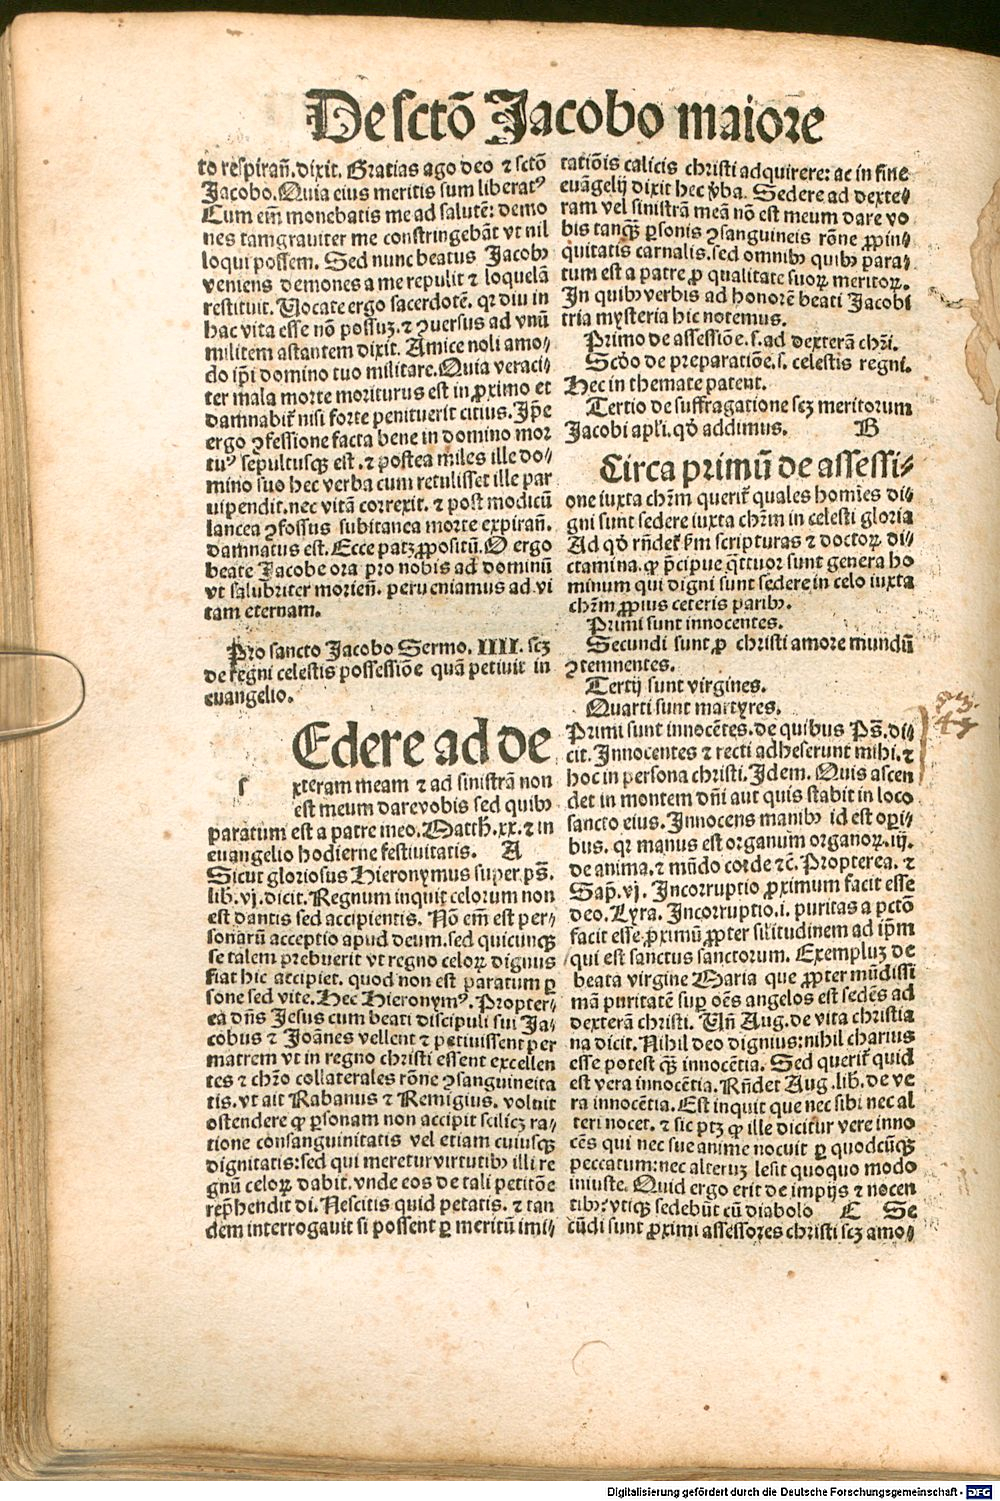 De sctō Jacobo maiore
to respirañ. dixit. Gratias ago deo ⁊ sctō
Jacobo. Quia eius meritis sum liberatꝰ
Cum em̄ monebatis me ad salutē: demo
nes tam grauiter me constringebāt vt nil
loqui possem. Sed nunc beatus Jacobꝰ
veniens demones a me repulit ⁊ loquelā
restituit. Uocate ergo sacerdotē. qr diu in
hac vita esse nō possuꝫ. ⁊ ꝯuersus ad vnū
militem astantem dixit. Amice noli amo⸗
do ip̄i domino tuo militare. Quia veraci⸗
ter mala morte moriturus est in ꝓximo et
damnabit̄ nisi forte penituerit citius. Ip̄e
ergo ꝯfessione facta bene in domino mor
tuꝰ sepultusqꝫ est. ⁊ postea miles ille do⸗
mino suo hec verba cum retulisset ille par
uipendit. nec vitā correxit. ⁊ post modicū
lancea ꝯfossus subitanea morte expirañ.
damnatus est. Ecce patꝫ ꝓpositū. O ergo
beate Jacobe ora pro nobis ad dominū
vt salubriter morieñ. perueniamus ad vi
tam eternam.
Pro sancto Jacobo Sermo. IIII. scꝫ
de regni celestis possessiōe quā petiuit in
euangelio.
Edere ad de
s xteram meam ⁊ ad sinistrā non
est meum dare vobis sed quibꝰ
paratum est a patre meo. Matth̄. xx. ⁊ in
euangelio hodierne festiuitatis. A
Sicut gloriosus Hieronymus super ps̄.
lib. vj. dicit. Regnum inquit celorum non
est dantis sed accipientis. Nō em̄ est per⸗
sonarū acceptio apud deum. sed quicunqꝫ
se talem prebuerit vt regno celoꝝ dignus
fiat hic accipiet. quod non est paratum ꝑ
sone sed vite. Hec Hieronymꝰ. Propter⸗
ea dñs Jesus cum beati discipuli sui Ja⸗
cobus ⁊ Joānes vellent ⁊ petiuissent per
matrem vt in regno christi essent excellen
tes ⁊ chr̄o collaterales rōne ꝯsanguineita
tis. vt ait Rabanus ⁊ Remigius. voluit
ostendere ꝙ ꝑsonam non accipit scilicꝫ ra⸗
tione consanguinitatis vel etiam cuiusqꝫ
dignitatis: sed qui meretur virtutibꝰ illi re
gnū celoꝝ dabit. vnde eos de tali petitōe
rep̄hendit di. Nescitis quid petatis. ⁊ tan
dem interrogauit si possent ꝑ meritū imi⸗
tatiōis calicis christi adquirere: ac in fine
euāgelij dixit hec v̄ba. Sedere ad dexte⸗
ram vel sinistrā meā nō est meum dare vo
bis tanqꝫ ꝑsonis ꝯsanguineis rōne ꝓpin⸗
quitatis carnalis. sed omnibꝰ quibꝰ ꝑara⸗
tum est a patre ꝓ qualitate suoꝝ meritoꝝ.
In quibꝰ verbis ad honorē beati Jacobi
tria mysteria hic notemus.
Primo de assessiōe. s. ad dexterā chr̄i.
Scd̄o de preparatiōe. s. celestis regni.
Hec in themate patent.
Tertio de suffragatione scꝫ meritorum
Jacobi apl̄i. qd̄ addimus. B
Circa primū de assessi⸗
one iuxta chr̄m querit̄ quales homīes di⸗
gni sunt sedere iuxta chr̄m in celesti gloria
Ad qd̄ rn̄det̄ ẜm scripturas ⁊ doctoꝝ di⸗
ctamina. ꝙ p̄cipue q̄ttuor sunt genera ho
minum qui digni sunt sedere in celo iuxta
chr̄m ꝓpius ceteris paribꝰ.
Primi sunt innocentes.
Secundi sunt ꝓ christi amore mundū
ꝯtemnentes.
Tertij sunt virgines.
Quarti sunt martyres.
Primi sunt innocētes. de quibus Ps̄. di⸗
cit. Innocentes ⁊ recti adheserunt mihi. ⁊
hoc in persona christi. Idem. Quis ascen
det in montem dñi aut quis stabit in loco
sancto eius. Innocens manibꝰ id est oꝑi⸗
bus. qr manus est organum organoꝝ. iij.
de anima. ⁊ mūdo corde ⁊c̄. Propterea. ⁊
Sap̄. vj. Incorruptio ꝓximum facit esse
deo. Lyra. Incorruptio. i. puritas a pctō
facit esse ꝓximū ꝓpter silitudinem ad ip̄m
qui est sanctus sanctorum. Exempluꝫ de
beata virgine Maria que ꝓpter mūdissi
mā puritatē suꝑ oēs angelos est sedēs ad
dexterā christi. Un̄ Aug. de vita christia
na dicit. Nihil deo dignius: nihil charius
esse potest qꝫ innocētia. Sed querit̄ quid
est vera innocētia. Rn̄det Aug. lib. de ve
ra innocētia. Est inquit que nec sibi nec al
teri nocet. ⁊ sic ptꝫ ꝙ ille dicitur vere inno
cēs qui nec sue anime nocuit ꝑ quodcūqꝫ
peccatum: nec alteruꝫ lesit quoquo modo
iniuste. Quid ergo erit de impijs ⁊ nocen
tibꝰ? vtiqꝫ sedebūt cū diabolo C Se
cūdi sunt ꝓximi assessores christi scꝫ amo⸗
Digitalisierung gefördert durch die Deutsche Forschungsgemeinschaft - DFG